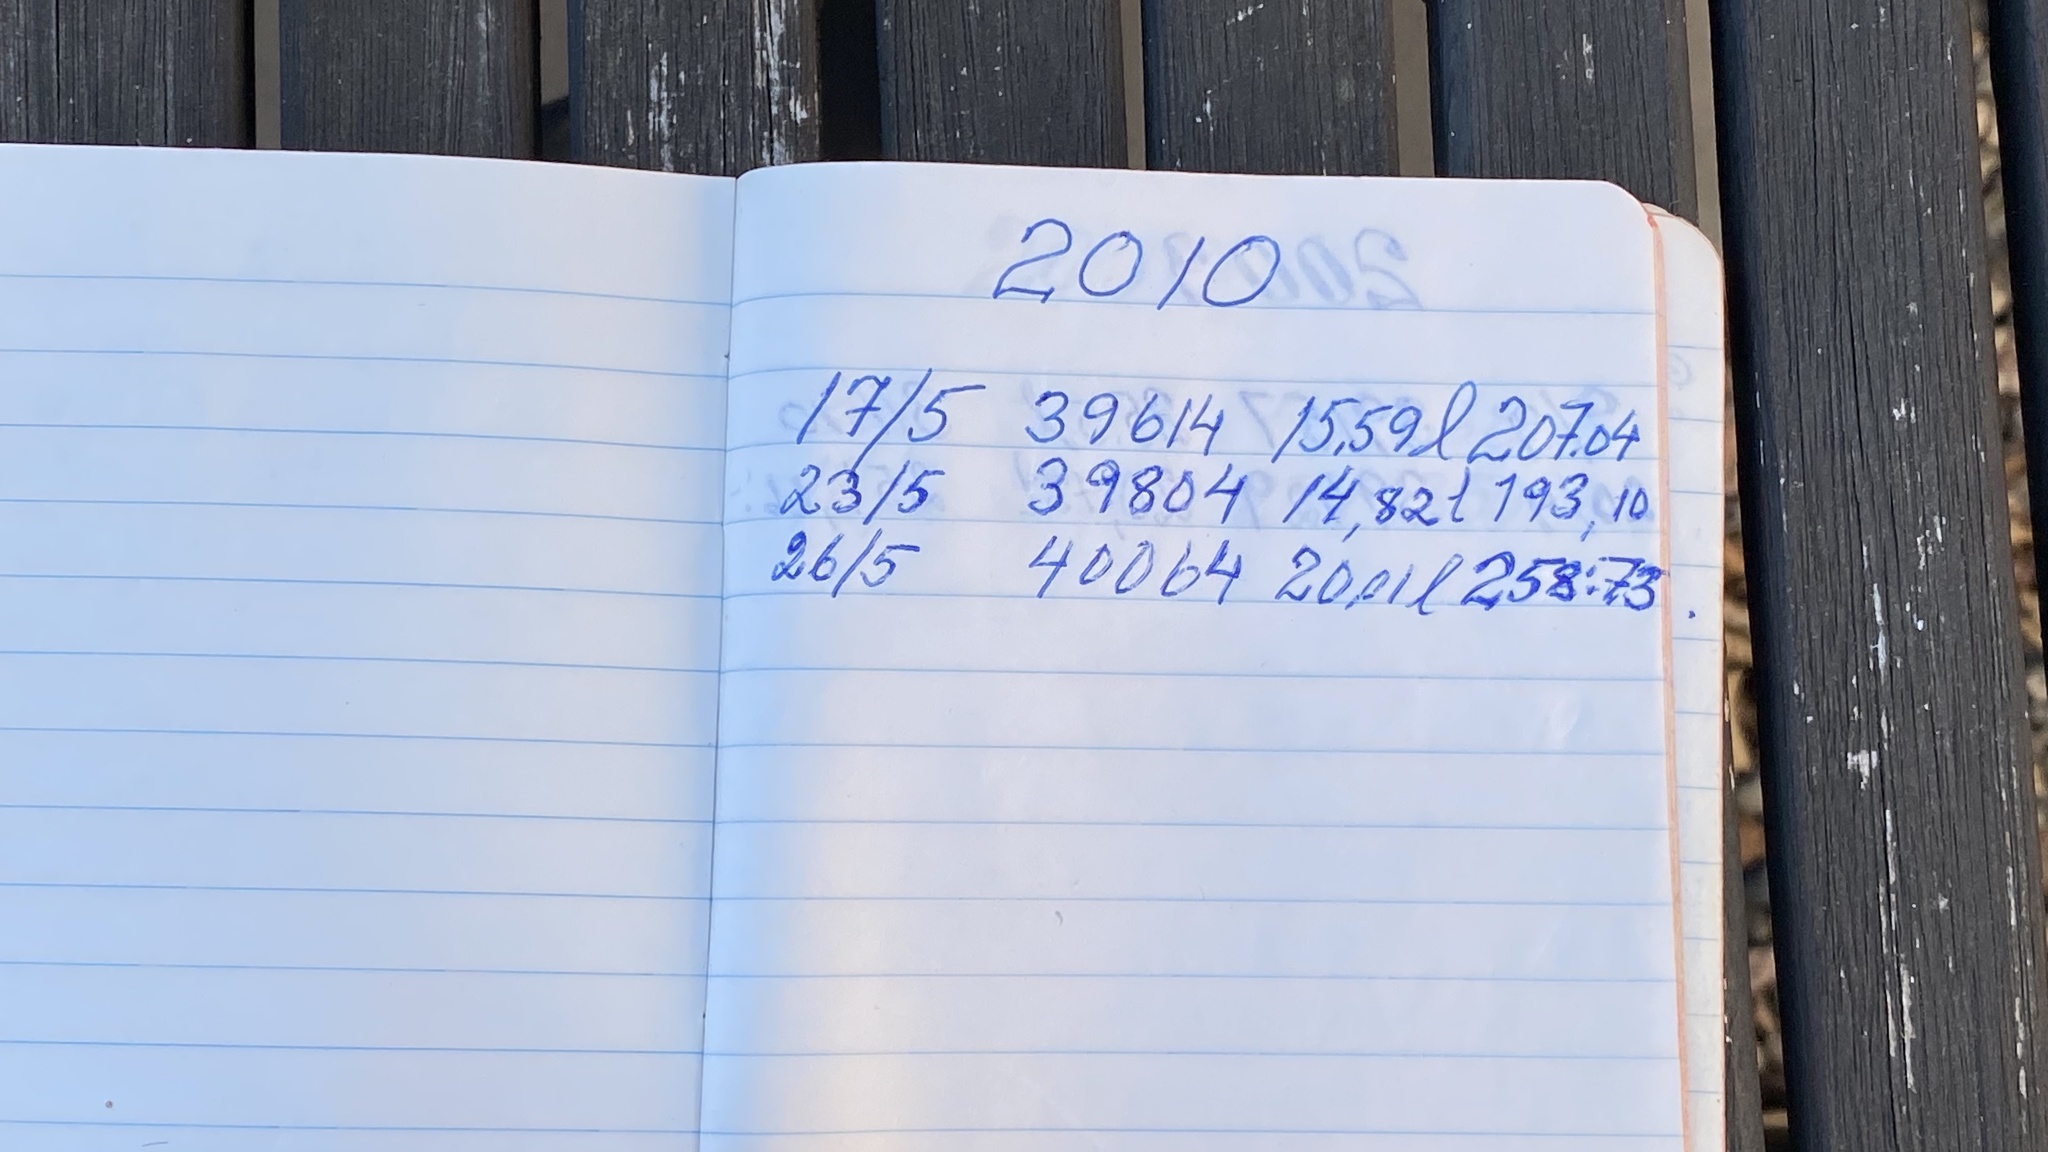 2010
17/5 39614 15,59 l 207.04
23/5 39804 14,82 l 193,10
26/5 40064 20,01 l 258:73